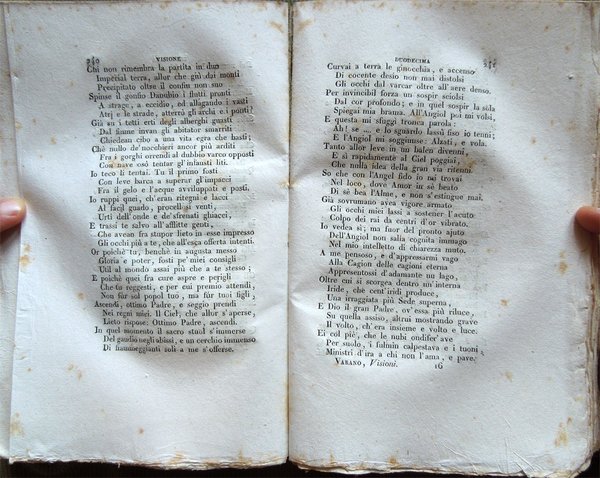 240 VISIONE
Chi non rimembra la partita in duo
Imperial terra, allor che giù dai monti
Precipitato oltre il confin non suo
Spinse il gonfio Danubio i flutti pronti
A strage, a eccidio, ed allagando i vasti
Atrj e le strade, atterrò gli archi e i ponti?
Già su i tetti erti degli alberghi guasti
Dal fiume invan gli abitator smarriti
Chiedean cibo a una vita egra che basti;
Chè nullo de' nocchieri ancor più arditi
Fra i gorghi orrendi al dubbio varco opposti
Con nave osò tentar gl'infausti liti.
Io teco li tentai. Tu il primo fosti
Con leve barca a superar gl'impacci
Fra il gelo e l'acque avviluppati e posti.
Io ruppi quei, ch'eran ritegni e lacci
Al facil guado, procelosi venti,
Urti dell'onde e de' sfrenati ghiacci,
E trassi te salvo all'afflitte genti,
Che avean fra stupor lieto in esse impresso
Gli occhi più a te, che all'esca offerta intenti.
Or poichè tu, benchè in augusta messo
Gloria e poter, fosti pe' miei consigli
Util al mondo assai più che a te stesso;
E poichè quei fra cure aspre e perigli
Che tu reggesti, e per cui premio attendi,
Non fur sol popol tuo, ma fur tuoi figli,
Ascendi, ottimo Padre, e seggio prendi
Nei regni miei. Il Ciel, che allor s'aperse,
Lieto rispose: Ottimo Padre, ascendi.
In quel momento il sacro stuol s'immerse
Del gaudio negli abissi, e un cerchio immenso
Di fiammeggianti soli a me s'offerse.
DUODECIMA 241
Curvai a terra le ginocchia, e acceso
Di cocente desio non mai distolsi
Gli occhi dal varcar oltre all'aere denso.
Per invincibil forza un sospir sciolsi
Dal cor profondo; e in quel sospir la sola
Spiegai mia brama. All'Angiol poi mi volsi,
E questa mi sfuggì tronca parola:
Ah! se .... e lo sguardo lassù fiso io tenni;
E l'Angiol mi soggiunse: Alzati, e vola.
Tanto allor leve in un balen divenni,
E sì rapidamente al Ciel poggiai,
Che nulla idea della gran via ritenni.
So che con l'Angel fido io mi trovai
Nel loco, dove Amor in sè beato
Di sè bea l'Alme, e non s'estingue mai.
Già sovrumano avea vigore armato
Gli occhi miei lassi a sostener l'acuto
Colpo dei rai da centri d'or vibrato.
Io vedea sì; ma fuor del pronto ajuto
Dell'Angiol non salìa cognita immago
Nel mio intelletto di chiarezza muto.
A me pensoso, e d'appressarmi vago
Alla Cagion delle cagioni eterna
Appresentossi d'adamante un lago,
Oltre cui si scorgea dentro un'interna
Iride, che cent'iridi produce,
Una irraggiata più Sede superna,
E Dio il gran Padre, ov'essa più riluce,
Su quella assiso, altrui mostrando grave
Il volto, ch'era insieme e volto e luce.
Ei col piè, che le nubi ondifer'ave
Per suolo, i fulmin calpestava e i tuoni,
Ministri d'ira a chi non l'ama, e pave.
VARANO, Visioni. 16